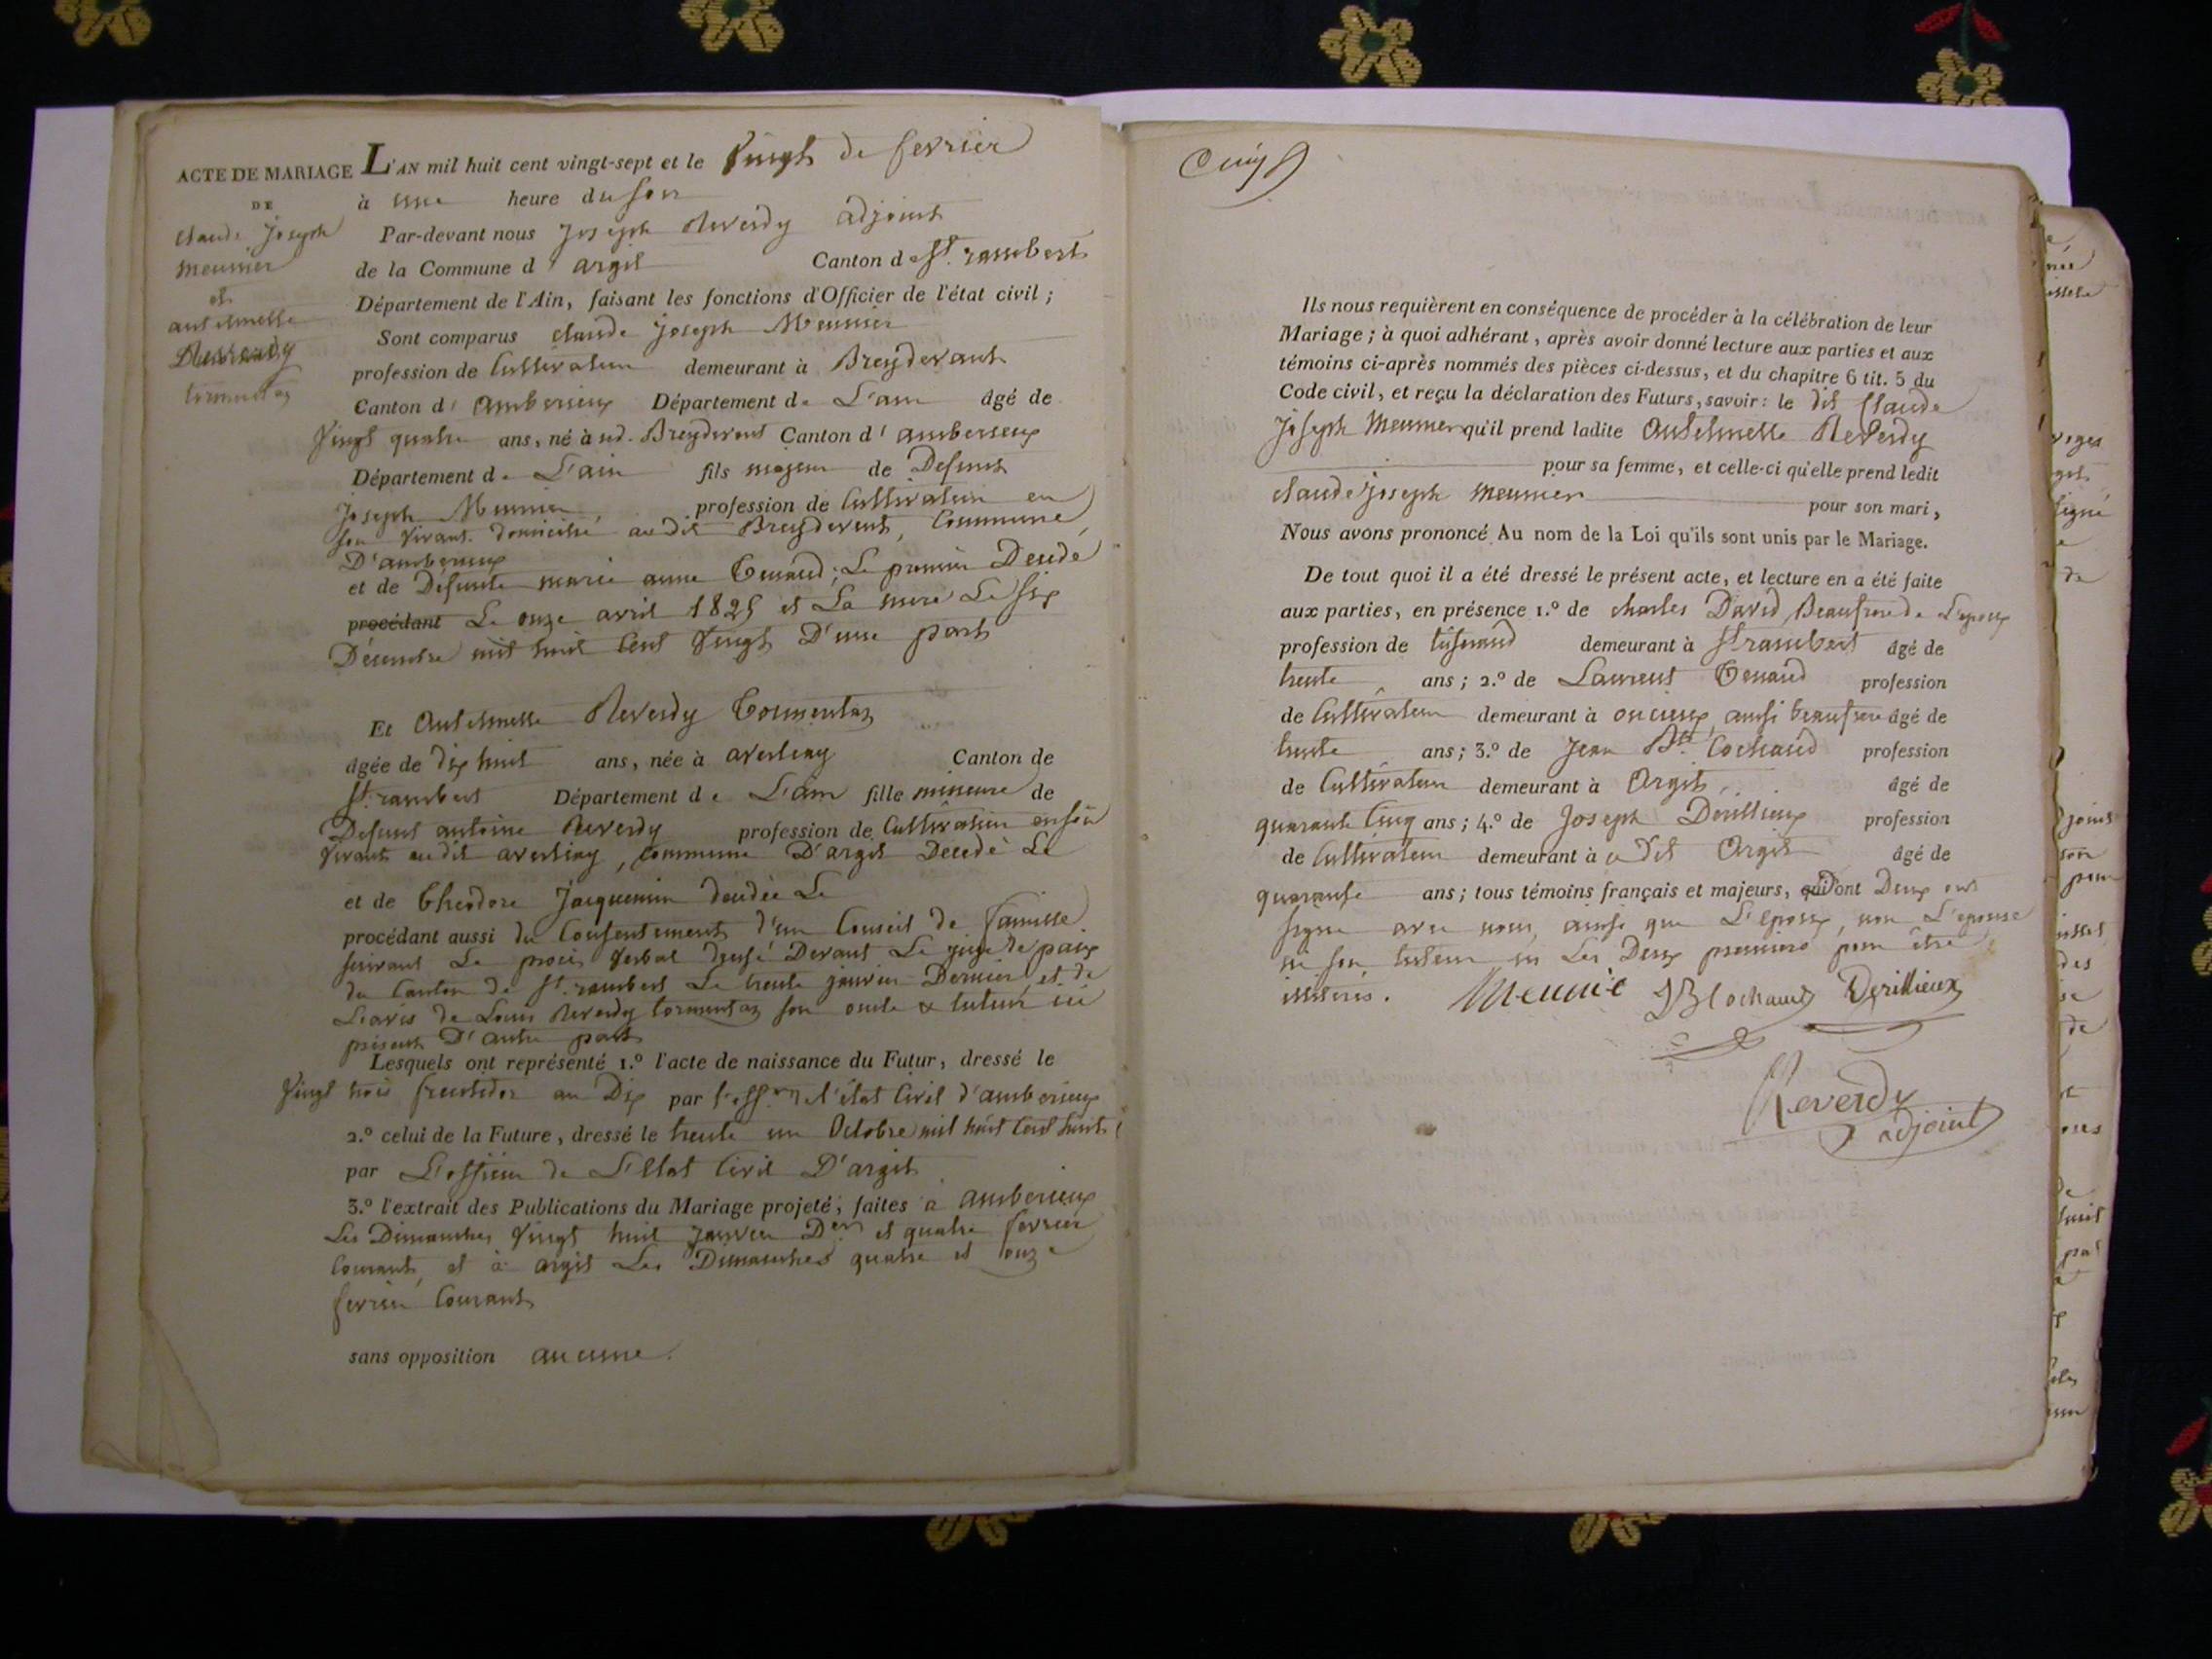 ACTE DE MARIAGE
DE
claude joseph
meunier
et
anthelmette
Reverdy
tormentaz
L'AN mil huit cent vingt-sept et le vingt de fevrier
à une heure du soir
Par-devant nous Joseph Reverdy adjoint
de la Commune d'argit Canton de St. rambert
Département de l'Ain, faisant les fonctions d'Officier de l'état civil;
Sont comparus claude joseph Meunier
profession de Cultivateur demeurant à Breydevant
Canton d'amberieux Département de L'ain âgé de
vingt quatre ans, né à ud. Breydevent Canton d'amberieux
Département de L'ain fils majeur de Defunt
Joseph Meunier, profession de Cultivateur en
son vivant domicilié au dit Breydevent, Commune
D'amberieux
et de Défunte marie anne Tenand; Le premier Decedé
procédant Le onze avril 1825 et La mere Le six
Décembre mil huit Cent vingt D'une part
Et Anthelmette Reverdy Tormentaz
âgée de dix huit ans, née à averliay Canton de
St. rambert Département de L'ain fille mineure de
Defunt antoine Reverdy profession de Cultivateur en son
vivant au dit averliay, Commune D'argit Decedé Le
et de Theodore Jacquemin decedée Le
procédant aussi du Consentement d'un Conseil de famille
suivant Le procès verbal dressé Devant Le juge de paix
du Canton de St. rambert Le trente janvier Dernier, et de
L'avis de Louis Reverdy tormentaz son oncle & tuteur ici
présent D'autre part
Lesquels ont représenté 1.º l'acte de naissance du Futur, dressé le
vingt trois fructidor an Dix par l'off.er d l'état Civil d'amberieux
2.º celui de la Future, dressé le trente un Octobre mil huit Cent huit
par L'officier de L'Etat Civil D'argit
3.º l'extrait des Publications du Mariage projeté; faites à amberieux
Les Dimanches vingt huit janvier Der. et quatre fevrier
Courant, et à argit Les Dimanches quatre et onze
fevrier Courant
sans opposition aucune.
Cinq
Ils nous requièrent en conséquence de procéder à la célébration de leur
Mariage; à quoi adhérant, après avoir donné lecture aux parties et aux
témoins ci-après nommés des pièces ci-dessus, et du chapitre 6 tit. 5 du
Code civil, et reçu la déclaration des Futurs, savoir: le dit Claude
Joseph Meunier qu'il prend ladite Anthelmette Reverdy
pour sa femme, et celle-ci qu'elle prend ledit
claude joseph meunier pour son mari,
Nous avons prononcé Au nom de la Loi qu'ils sont unis par le Mariage.
De tout quoi il a été dressé le présent acte, et lecture en a été faite
aux parties, en présence 1.º de charles David, Beaufrere de L'epoux
profession de tisserand demeurant à St rambert âgé de
trente ans; 2.º de Laurent Tenand profession
de Cultivateur demeurant à oncieux, aussi beaufrere âgé de
trente ans; 3.º de Jean Bte. Cochaud profession
de Cultivateur demeurant à Argit, âgé de
quarante Cinq ans; 4.º de Joseph Derillieux profession
de Cultivateur demeurant à u Dit Argit âgé de
quarante ans; tous témoins français et majeurs, qui Dont Deux ont
signé avec nous, ainsi que L'epoux, non L'epouse
ni son tuteur ni Les Deux premiers pour être
illiterés. Meunié JB Cochaud Derillieux
Reverdy
adjoint